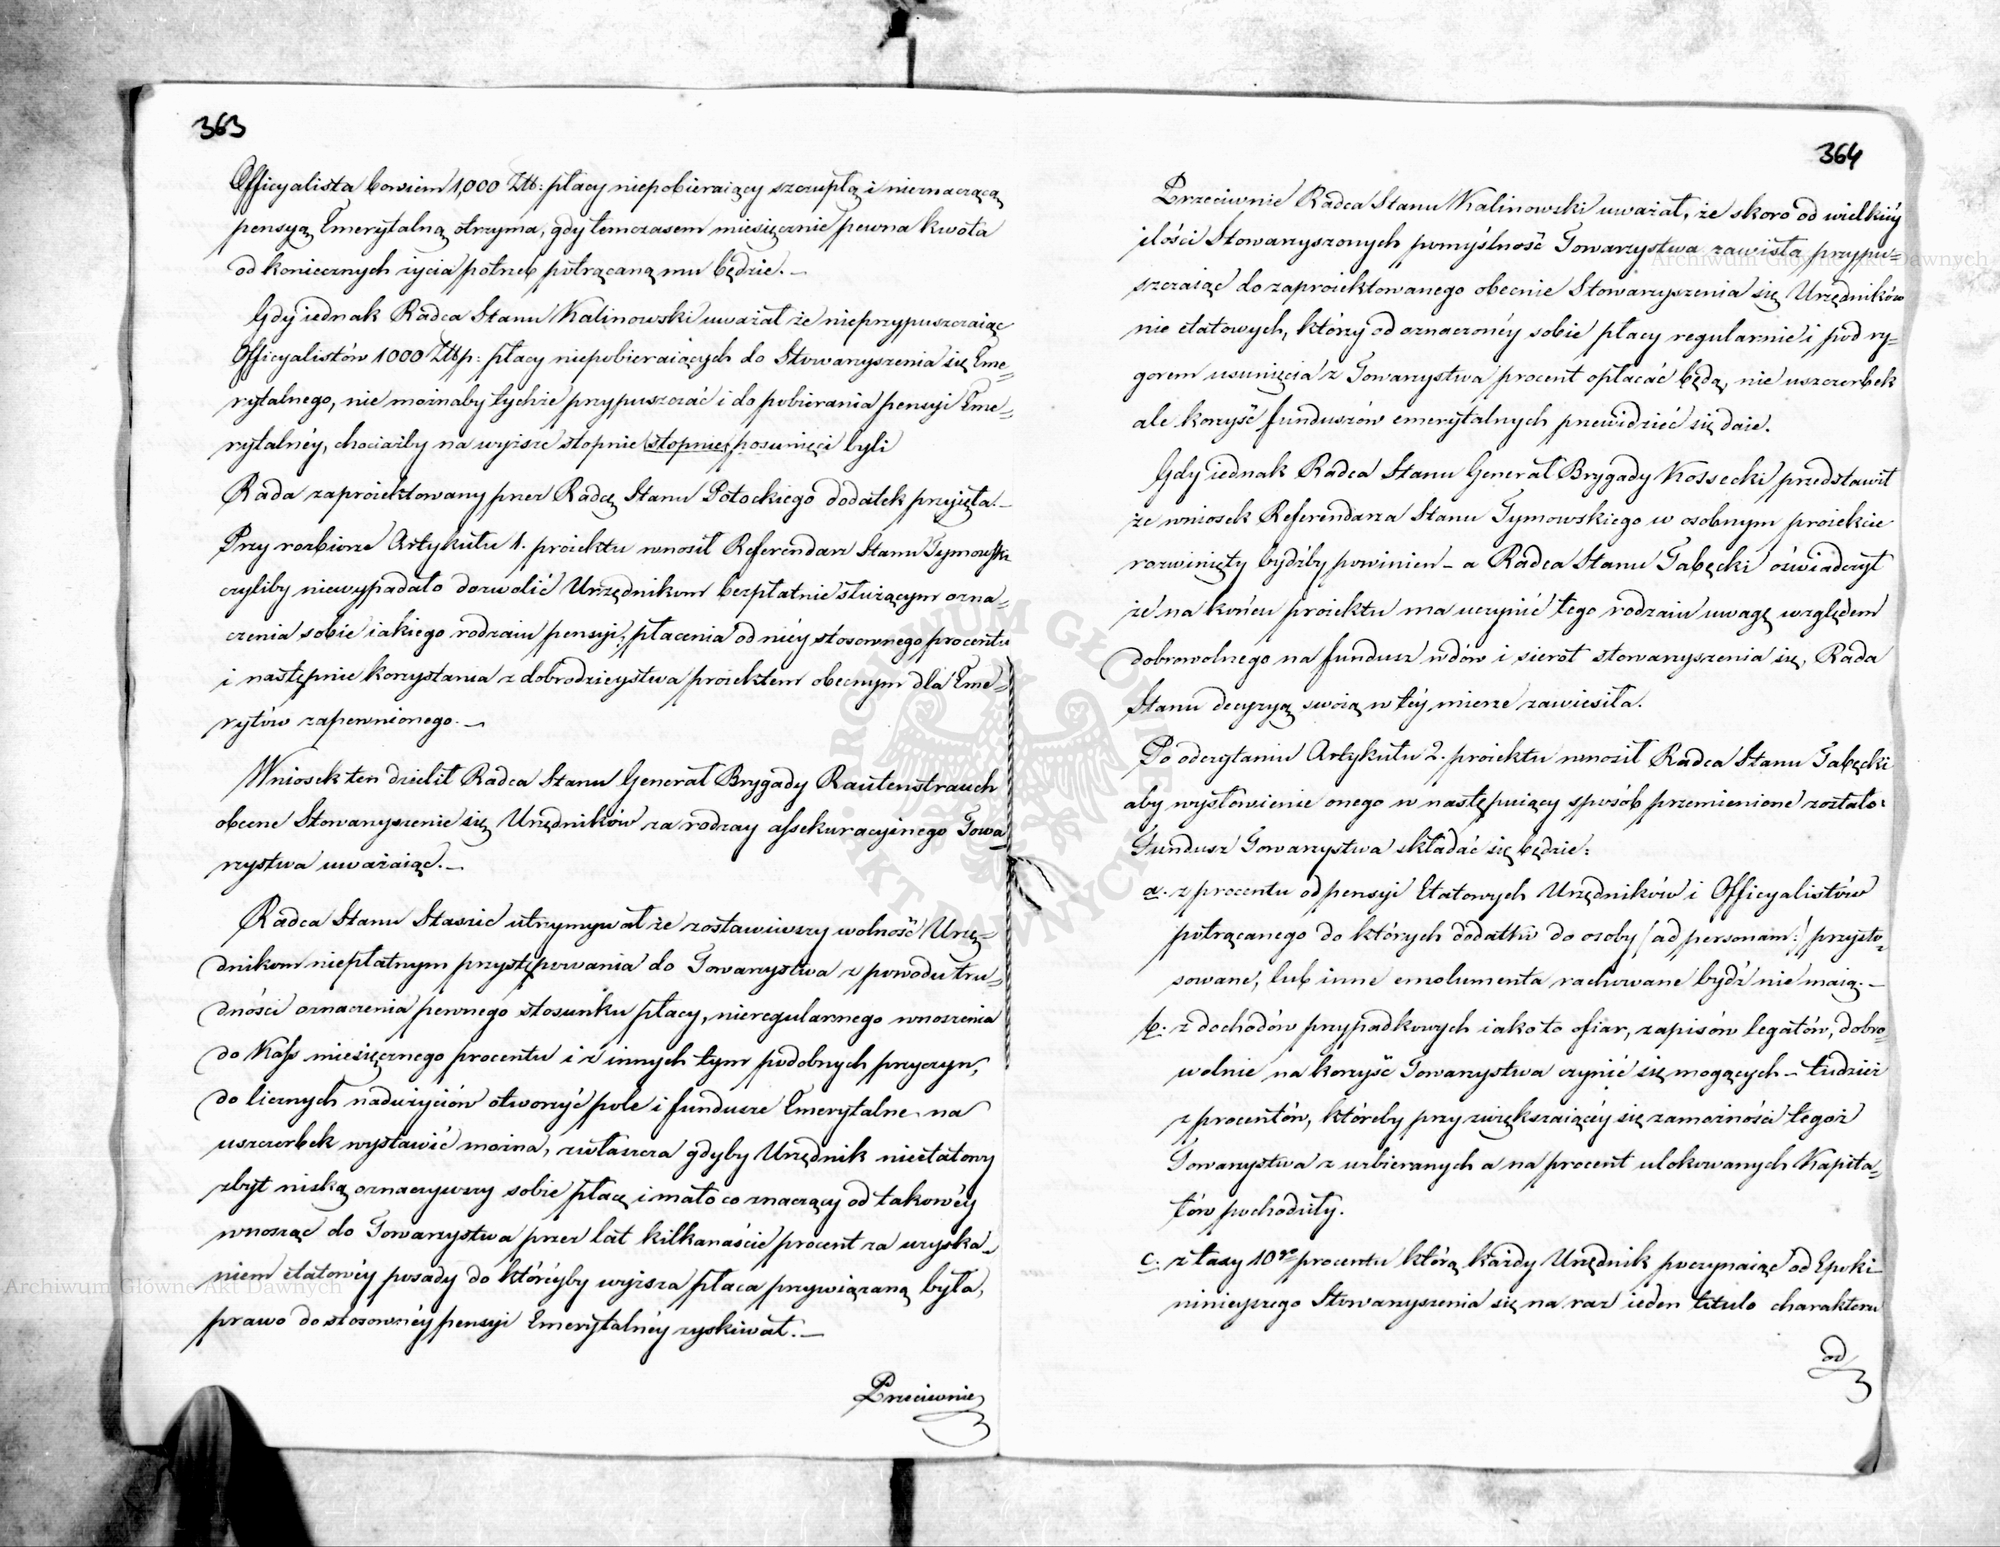 363
Officyalista bowiem 1,000 Złt: płacy niepobieraiący szczupłą i nieznaczącą
pensyą Emerytalną otrzyma, gdy tymczasem miesięcznie pewna kwota
od koniecznych życia potrzeb potrącaną mu będzie. —
Gdy iednak Radca Stanu Kalinowski uważał że nieprzypuszczaiąc
Officyalistów 1000 Złtp: płacy niepobieraiących do Stowarzyszenia się Eme=
rytalnego, nie możnaby tychże przypuszczać i do pobierania pensyi Eme=
rytalnéy, chociażby na wyższe stopnie (stopnie) posunięci byli
Rada zaproiektowany przez Radcę Stanu Potockiego dodatek przyięła. —
Przy rozbiorze Artykułu 1. proiektu wnosił Referendarz Stanu Tymowski
czyliby niewypadało dozwolić Urzędnikom bezpłatnie służącym ozna=
czenia sobie iakiego rodzaiu pensyi, płacenia od niéy stosownego procentu
i następnie korzystania z dobrodzieystwa proiektem obecnym dla Eme=
rytów zapewnionego. —
Wniosek ten dzielił Radca Stanu Generał Brygady Rautenstrauch
obecne Stowarzyszenie się Urzędników za rodzay assekuracyinego Towa=
rzystwa uważaiąc. —
Radca Stanu Staszic utrzymywał że zostawiwszy wolność Urzę=
dnikom niepłatnym przystępowania do Towarzystwa z powodu tru=
dności oznaczenia pewnego stosunku płacy, nieregularnego wnoszenia
do Kass miesięcznego procentu i z innych tym podobnych przyczyn,
do licznych nadużyciów otworzyć pole i fundusze Emerytalne na
uszczerbek wystawić można, zwłaszcza gdyby Urzędnik nieetatowy
zbyt niską oznaczywszy sobie płacę i mało co znaczący od takowéy
wnosząc do Towarzystwa przez lat kilkanaście procent za uzyska=
niem etatowéy posady do któréyby wyższa płaca przywiązaną była,
prawo do stosownéy pensyi Emerytalnéy zyskiwał. —
Przeciwnie
364
Przeciwnie Radca Stanu Kalinowski uważał, że skoro od wielkiéy
ilości Stowarzyszonych pomyślność Towarzystwa zawisła przypu=
szczaiąc do zaproiektowanego obecnie Stowarzyszenia się Urzędników
nie etatowych, którzy od oznaczonéy sobie płacy regularnie i pod ry=
gorem usunięcia z Towarzystwa procent opłacać będą, nie uszczerbek
ale korzyść funduszów emerytalnych przewidzieć się daie.
Gdy iednak Radca Stanu Generał Brygady Kossecki przedstawił
że wniosek Referendarza Stanu Tymowskiego w osobnym proiekcie
rozwinięty bydźby powinien – a Radca Stanu Tabęcki oświadczył
że na końcu proiektu ma uczynić tego rodzaiu uwagę względem
dobrowolnego na fundusz wdów i sierot stowarzyszenia się, Rada
Stanu decyzyą swoią w téy mierze zawiesiła.
Po odczytaniu Artykułu 2. proiektu wnosił Radca Stanu Tabęcki
aby wysłowienie onego w następuiący sposób przemienione zostało:
Fundusz Towarzystwa składać się będzie:
a. z procentu od pensyi Etatowych Urzędników i Officyalistów
potrącanego do których dodatki do osoby (ad personam:) przysto=
sowane, lub inne emolumenta rachowane bydź nie maią. —
b. z dochodów przypadkowych iako to ofiar, zapisów legatów, dobro=
wolnie na korzyść Towarzystwa czynić się mogących – tudzież
z procentów, któreby przy zwiększaiącéy się zamożności tegoż
Towarzystwa z uzbieranych a na procent ulokowanych Kapita=
łów pochodziły.
c. z taxy 10go procentu którą każdy Urzędnik poczynaiąc od Epoki
ninieyszego Stowarzyszenia się na raz ieden titulo charakteru
od
Archiwum Główne Akt Dawnych
Archiwum Główne Akt Dawnych
ARCHIWUM GŁÓWNE AKT DAWNYCH